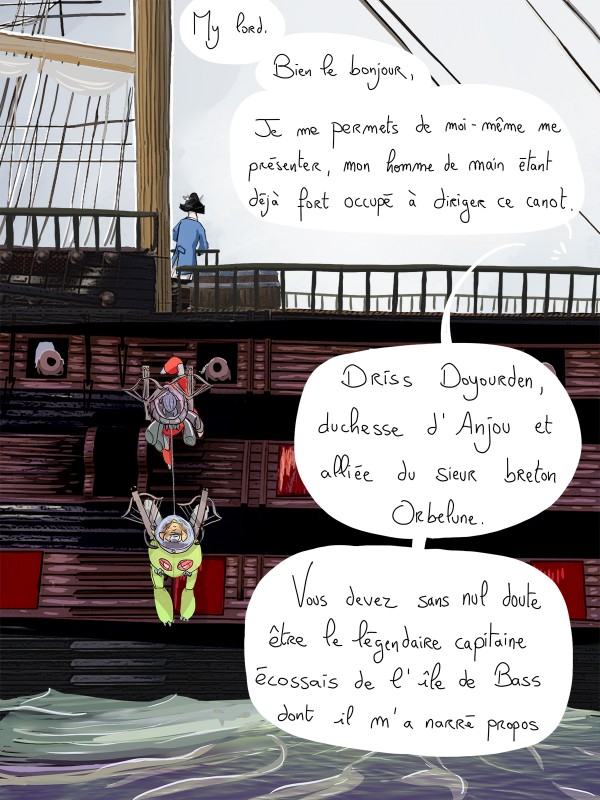 My lord.
Bien le bonjour,
Je me permets de moi-même me
présenter, mon homme de main étant
déjà fort occupé à diriger ce canot.
Driss Doyourden,
duchesse d'Anjou et
alliée du sieur breton
Orbelune.
Vous devez sans nul doute
être le légendaire capitaine
écossais de l'île de Bass
dont il m'a narré propos